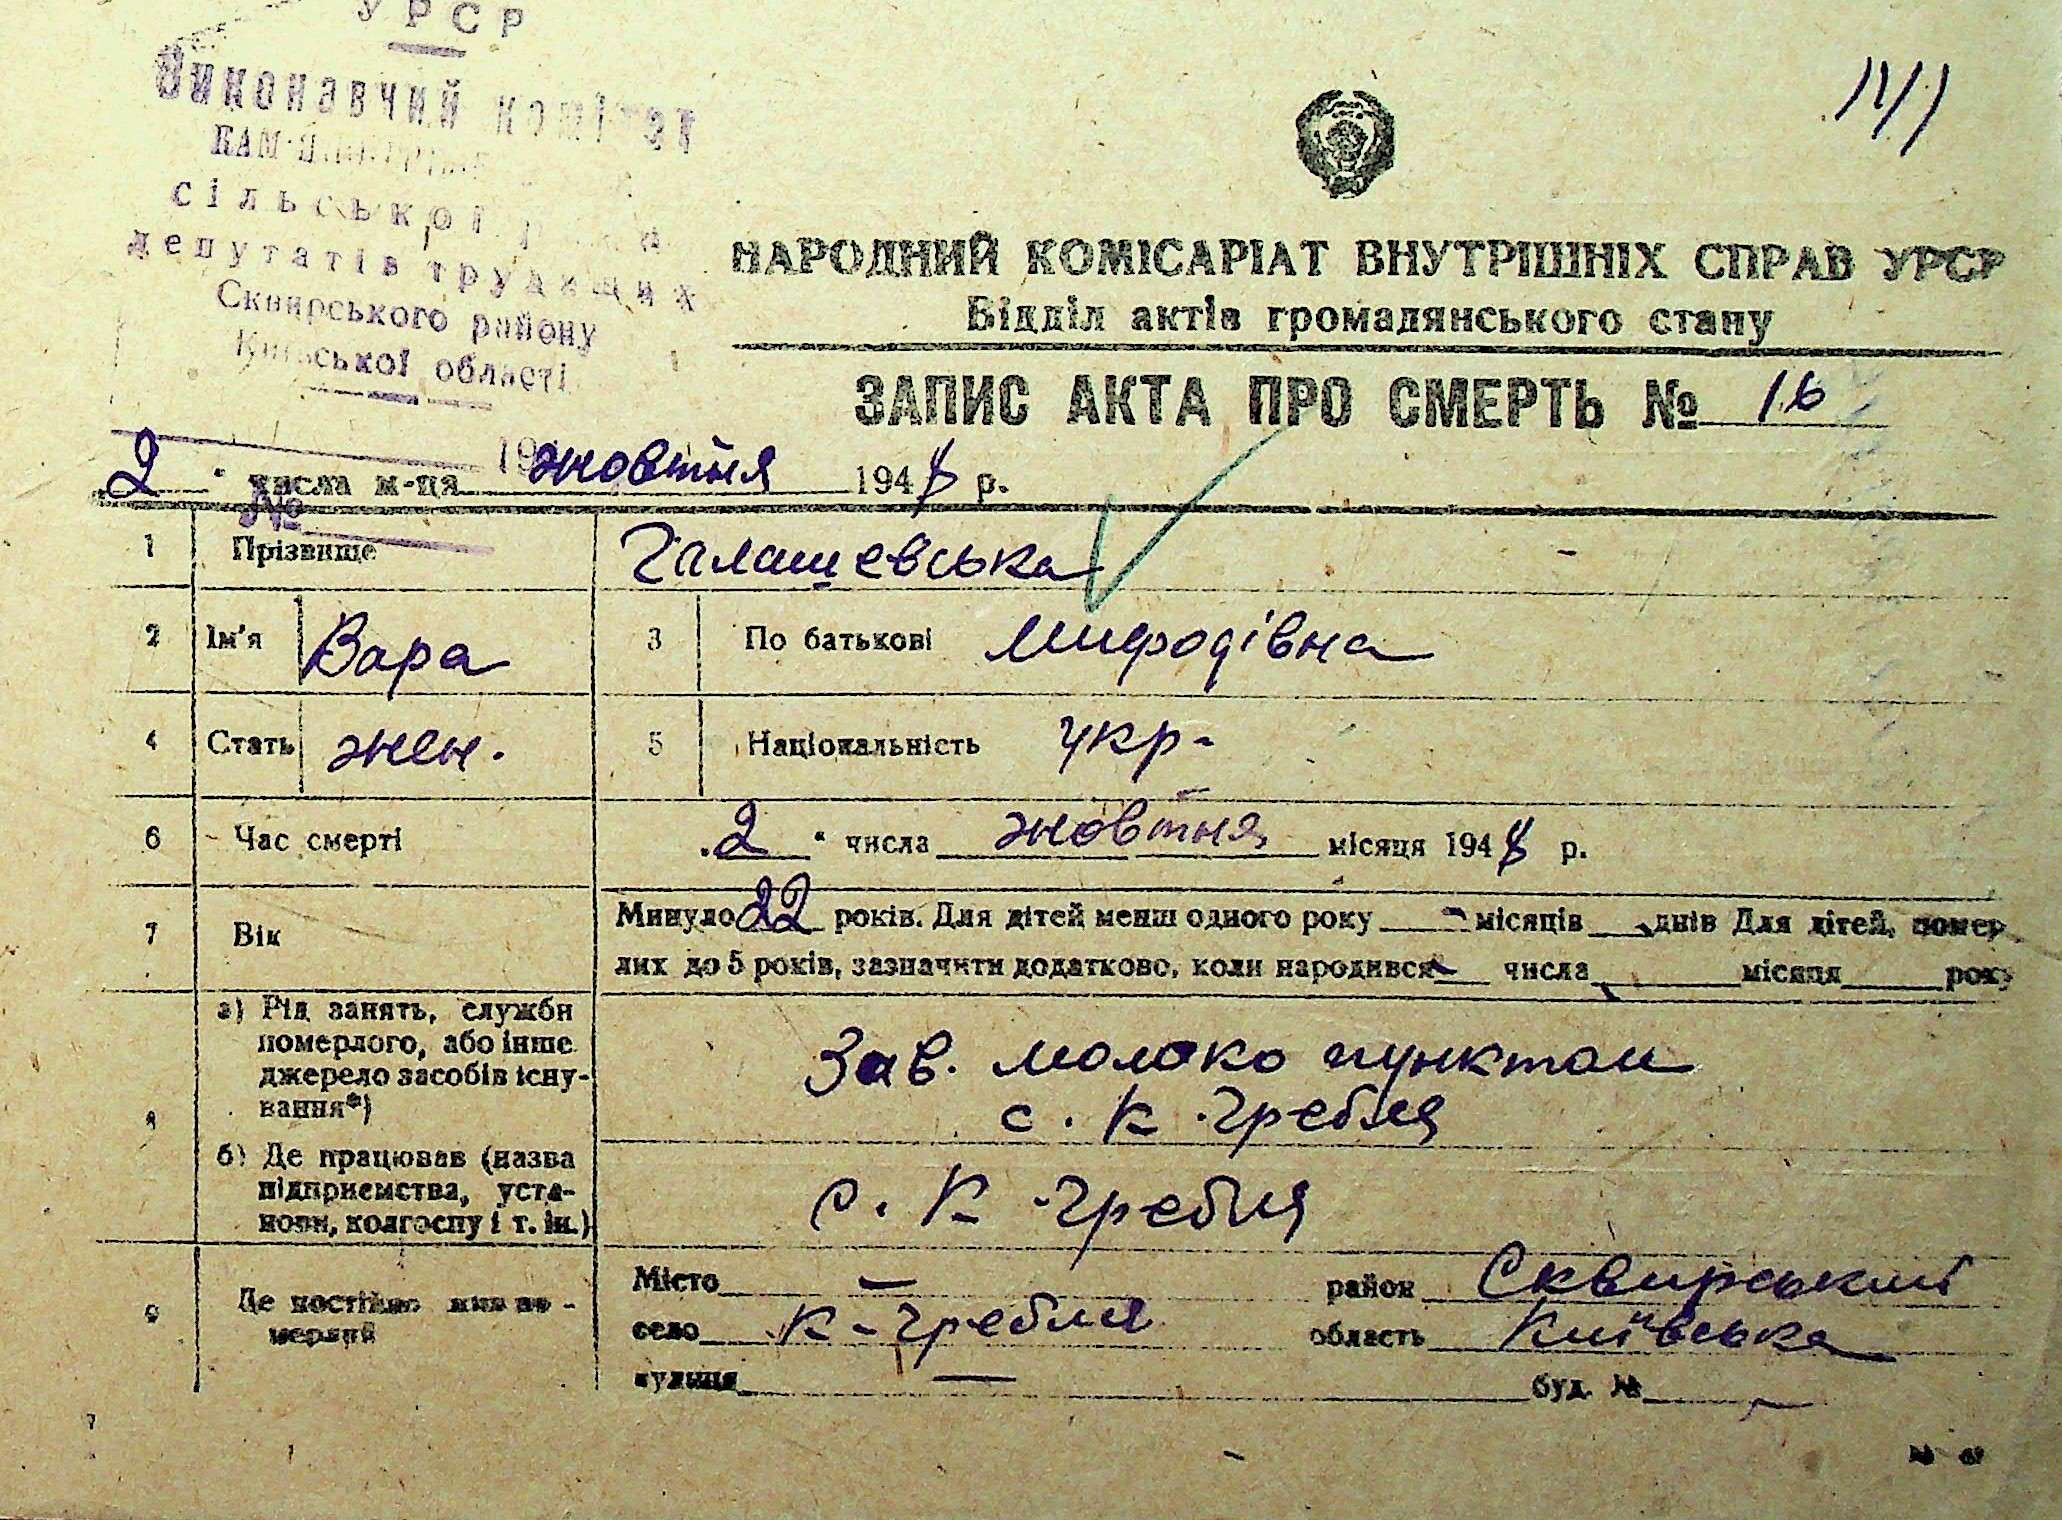 УРСР
Виконавчий комітет
сільської ради
депутатів трудящих
Сквирського району
Київської області
НАРОДНИЙ КОМІСАРІАТ ВНУТРІШНІХ СПРАВ УРСР
Відділ актів громадянського стану
ЗАПИС АКТА ПРО СМЕРТЬ № 16
2 " числа м-ця жовтня 1948 р.
№
1 Прізвище Галашевська
2 Ім'я Вара 3 По батькові Мифодівна
4 Стать жен. 5 Національність укр-
6 Час смерті „2" числа жовтня місяця 1948 р.
7 Вік Минуло 22 років. Для дітей менш одного року - місяців днів Для дітей, помер
лих до 5 років, зазначити додатково, коли народився - числа місяця року
8 а) Рід занять, служби померлого, або інше джерело засобів існування*) Зав. молоко пунктом
с. К. Гребля
б) Де працював (назва підприємства, установи, колгоспу і т. ін.) с. К-Гребля
9 Де постійно жив померлий Місто — район Сквирський
село К-Гребля область Київська
вулиця — буд. № -